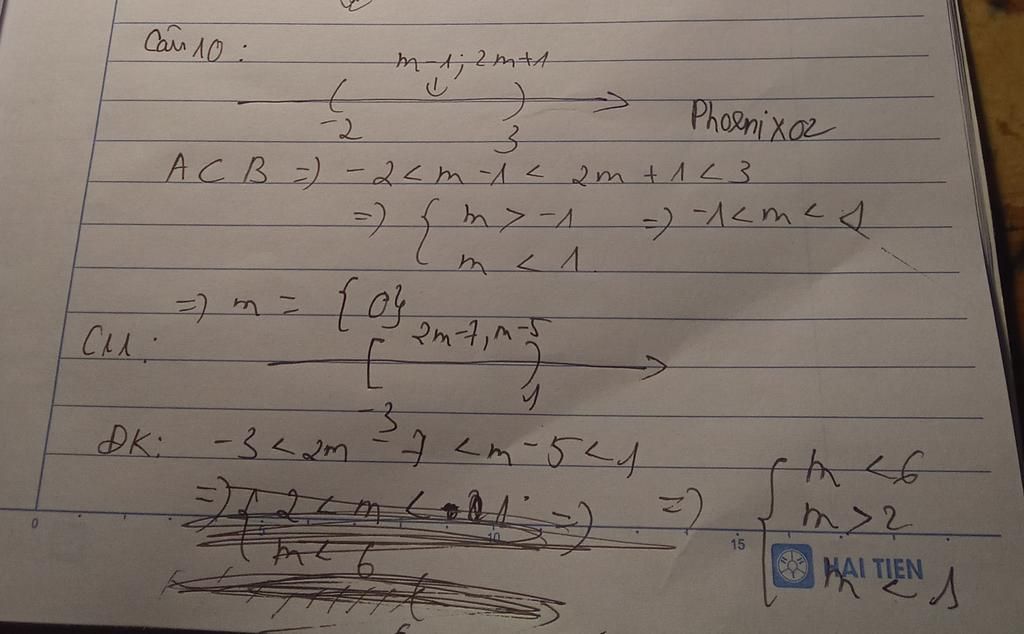 Câu 10:
m-1; 2m+1
-2 3
Phoenix02
A ⊂ B => -2 < m -1 < 2m + 1 < 3
=> { m > -1 => -1 < m < 1
m < 1
=> m = {0}
C11:
2m-7, m-5
-3 1
ĐK: -3 < 2m - 7 < m - 5 < 1
=> { m < 6
m > 2
m < 1
m < 6
0 5 10 15
HAI TIEN